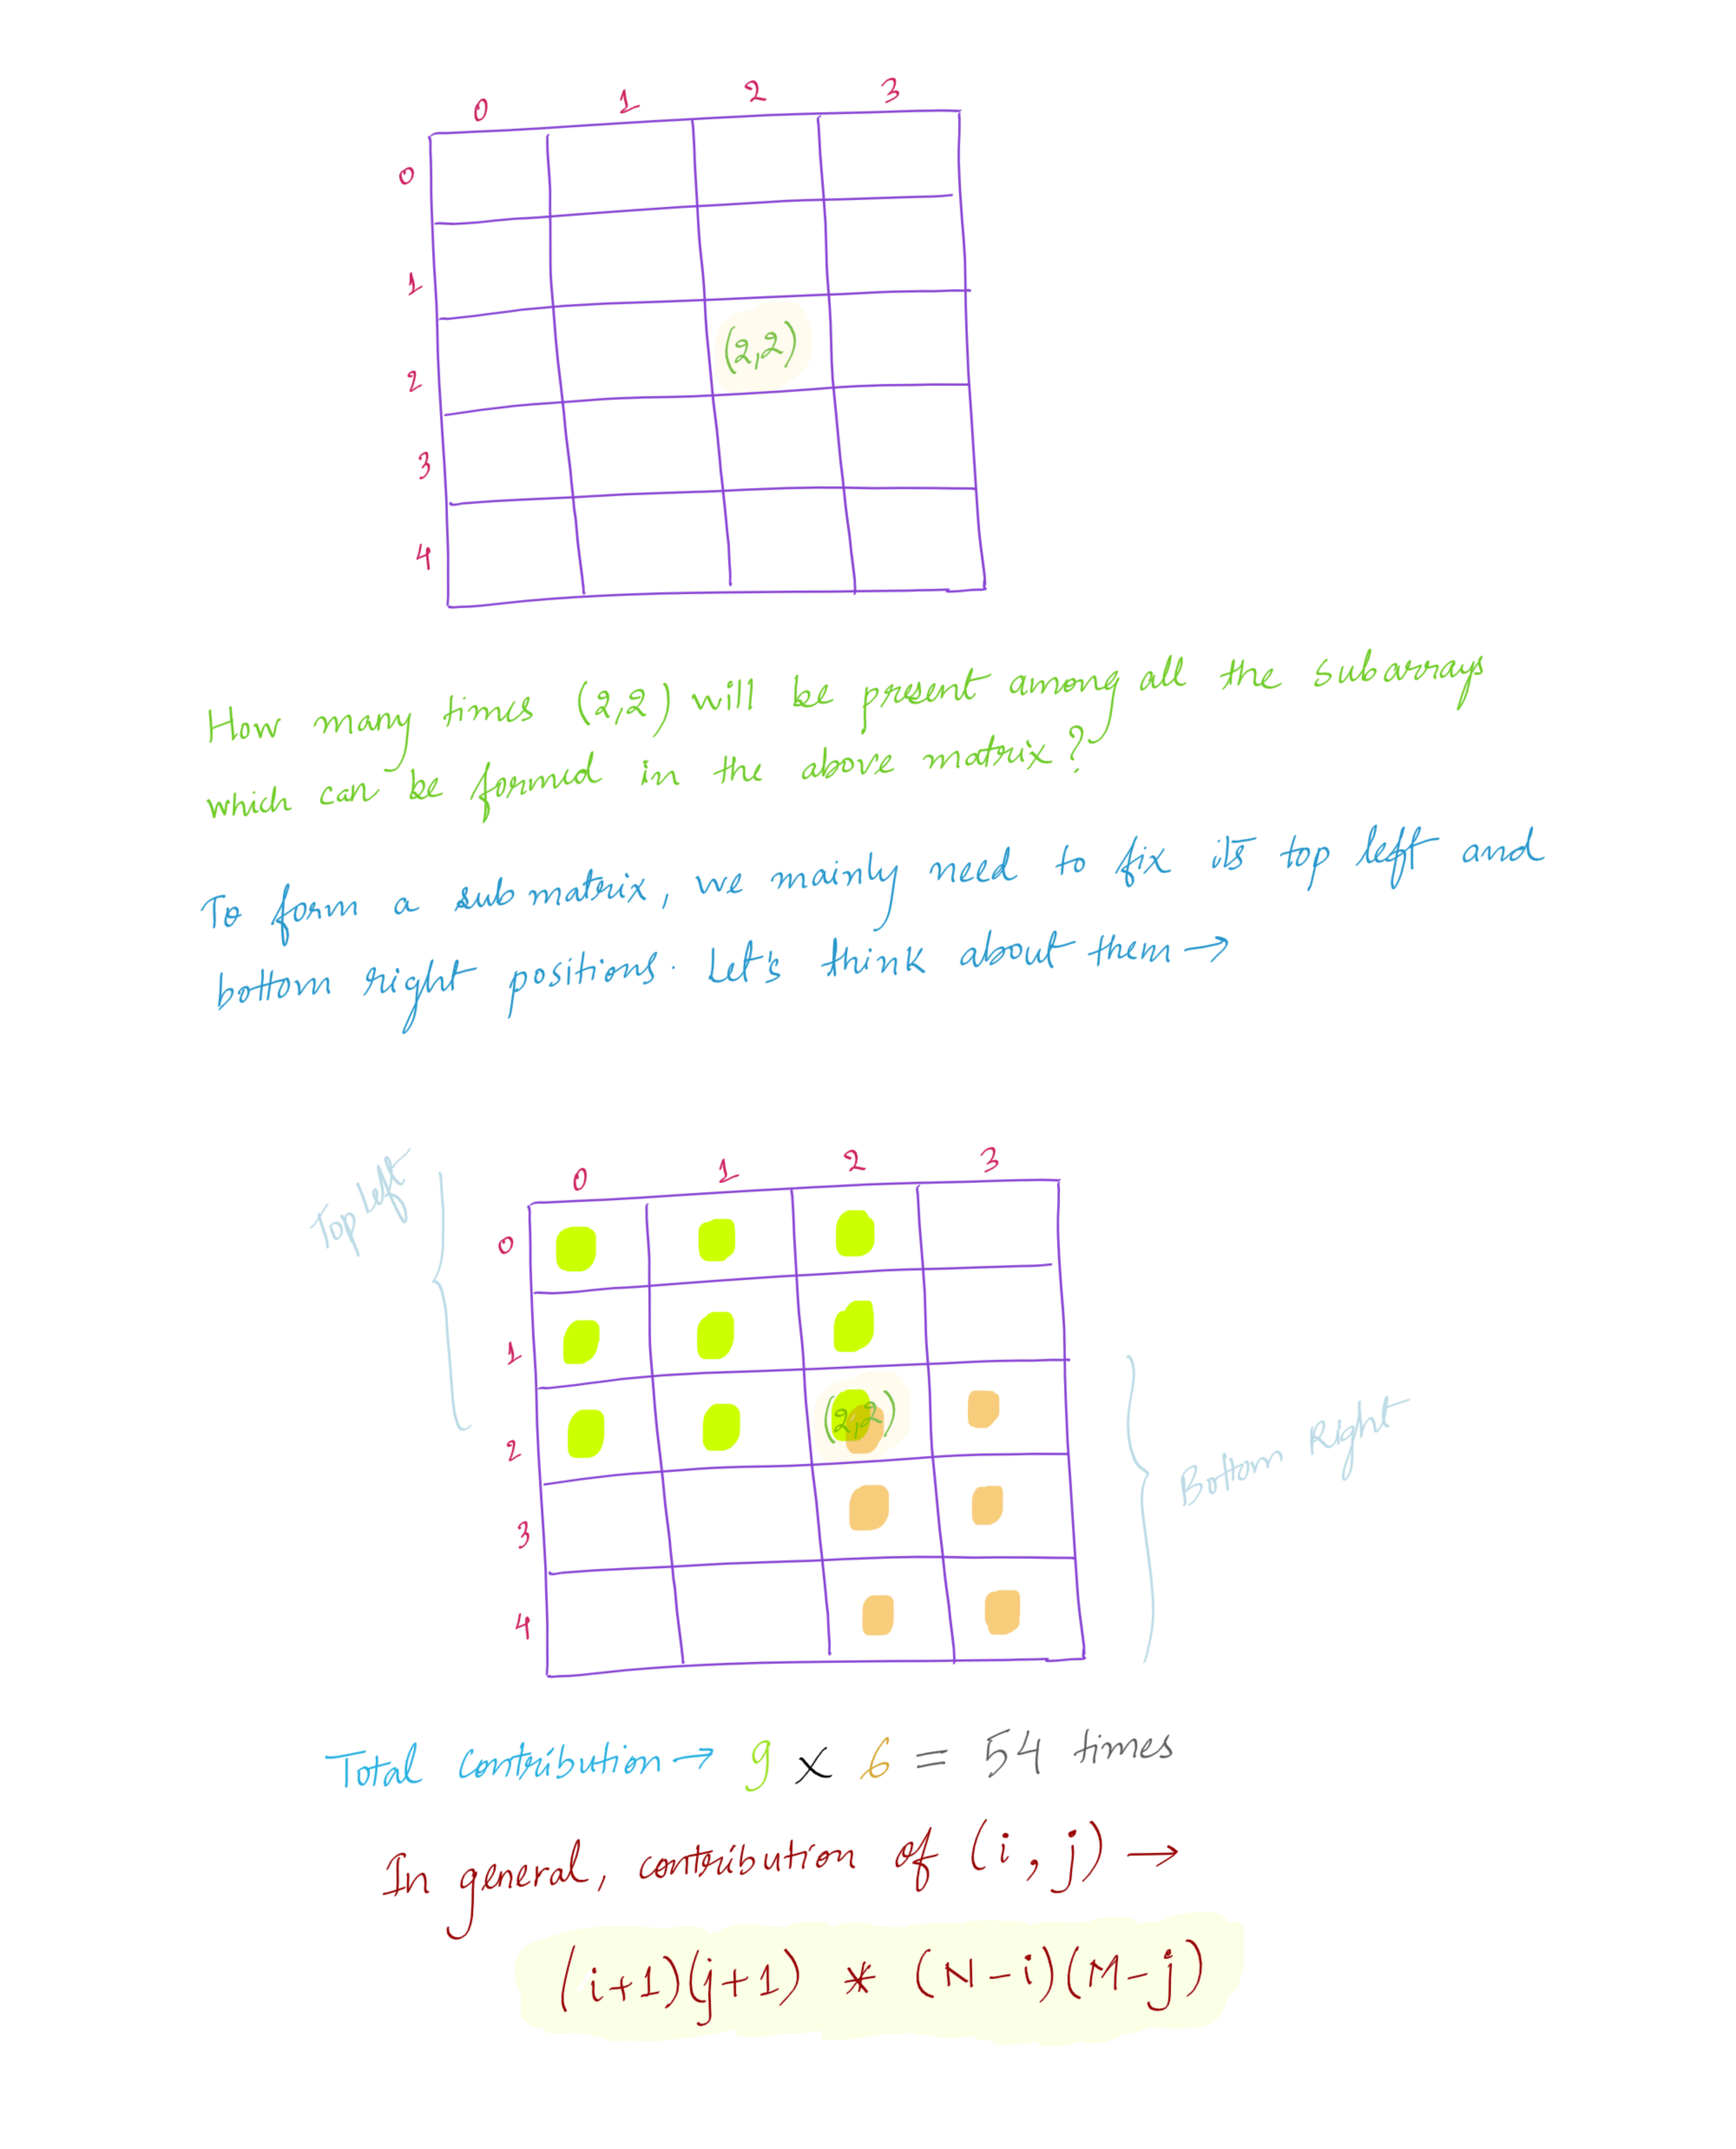 0 1 2 3
0
1
2 (2,2)
3
4
How many times (2,2) will be present among all the subarrays
which can be formed in the above matrix?
To form a submatrix, we mainly need to fix its top left and
bottom right positions. Let's think about them →
Top Left
0 1 2 3
0
1
2 (2,2)
3
4
Bottom Right
Total contribution → 9 x 6 = 54 times
In general, contribution of (i, j) →
(i+1)(j+1) * (N-i)(M-j)